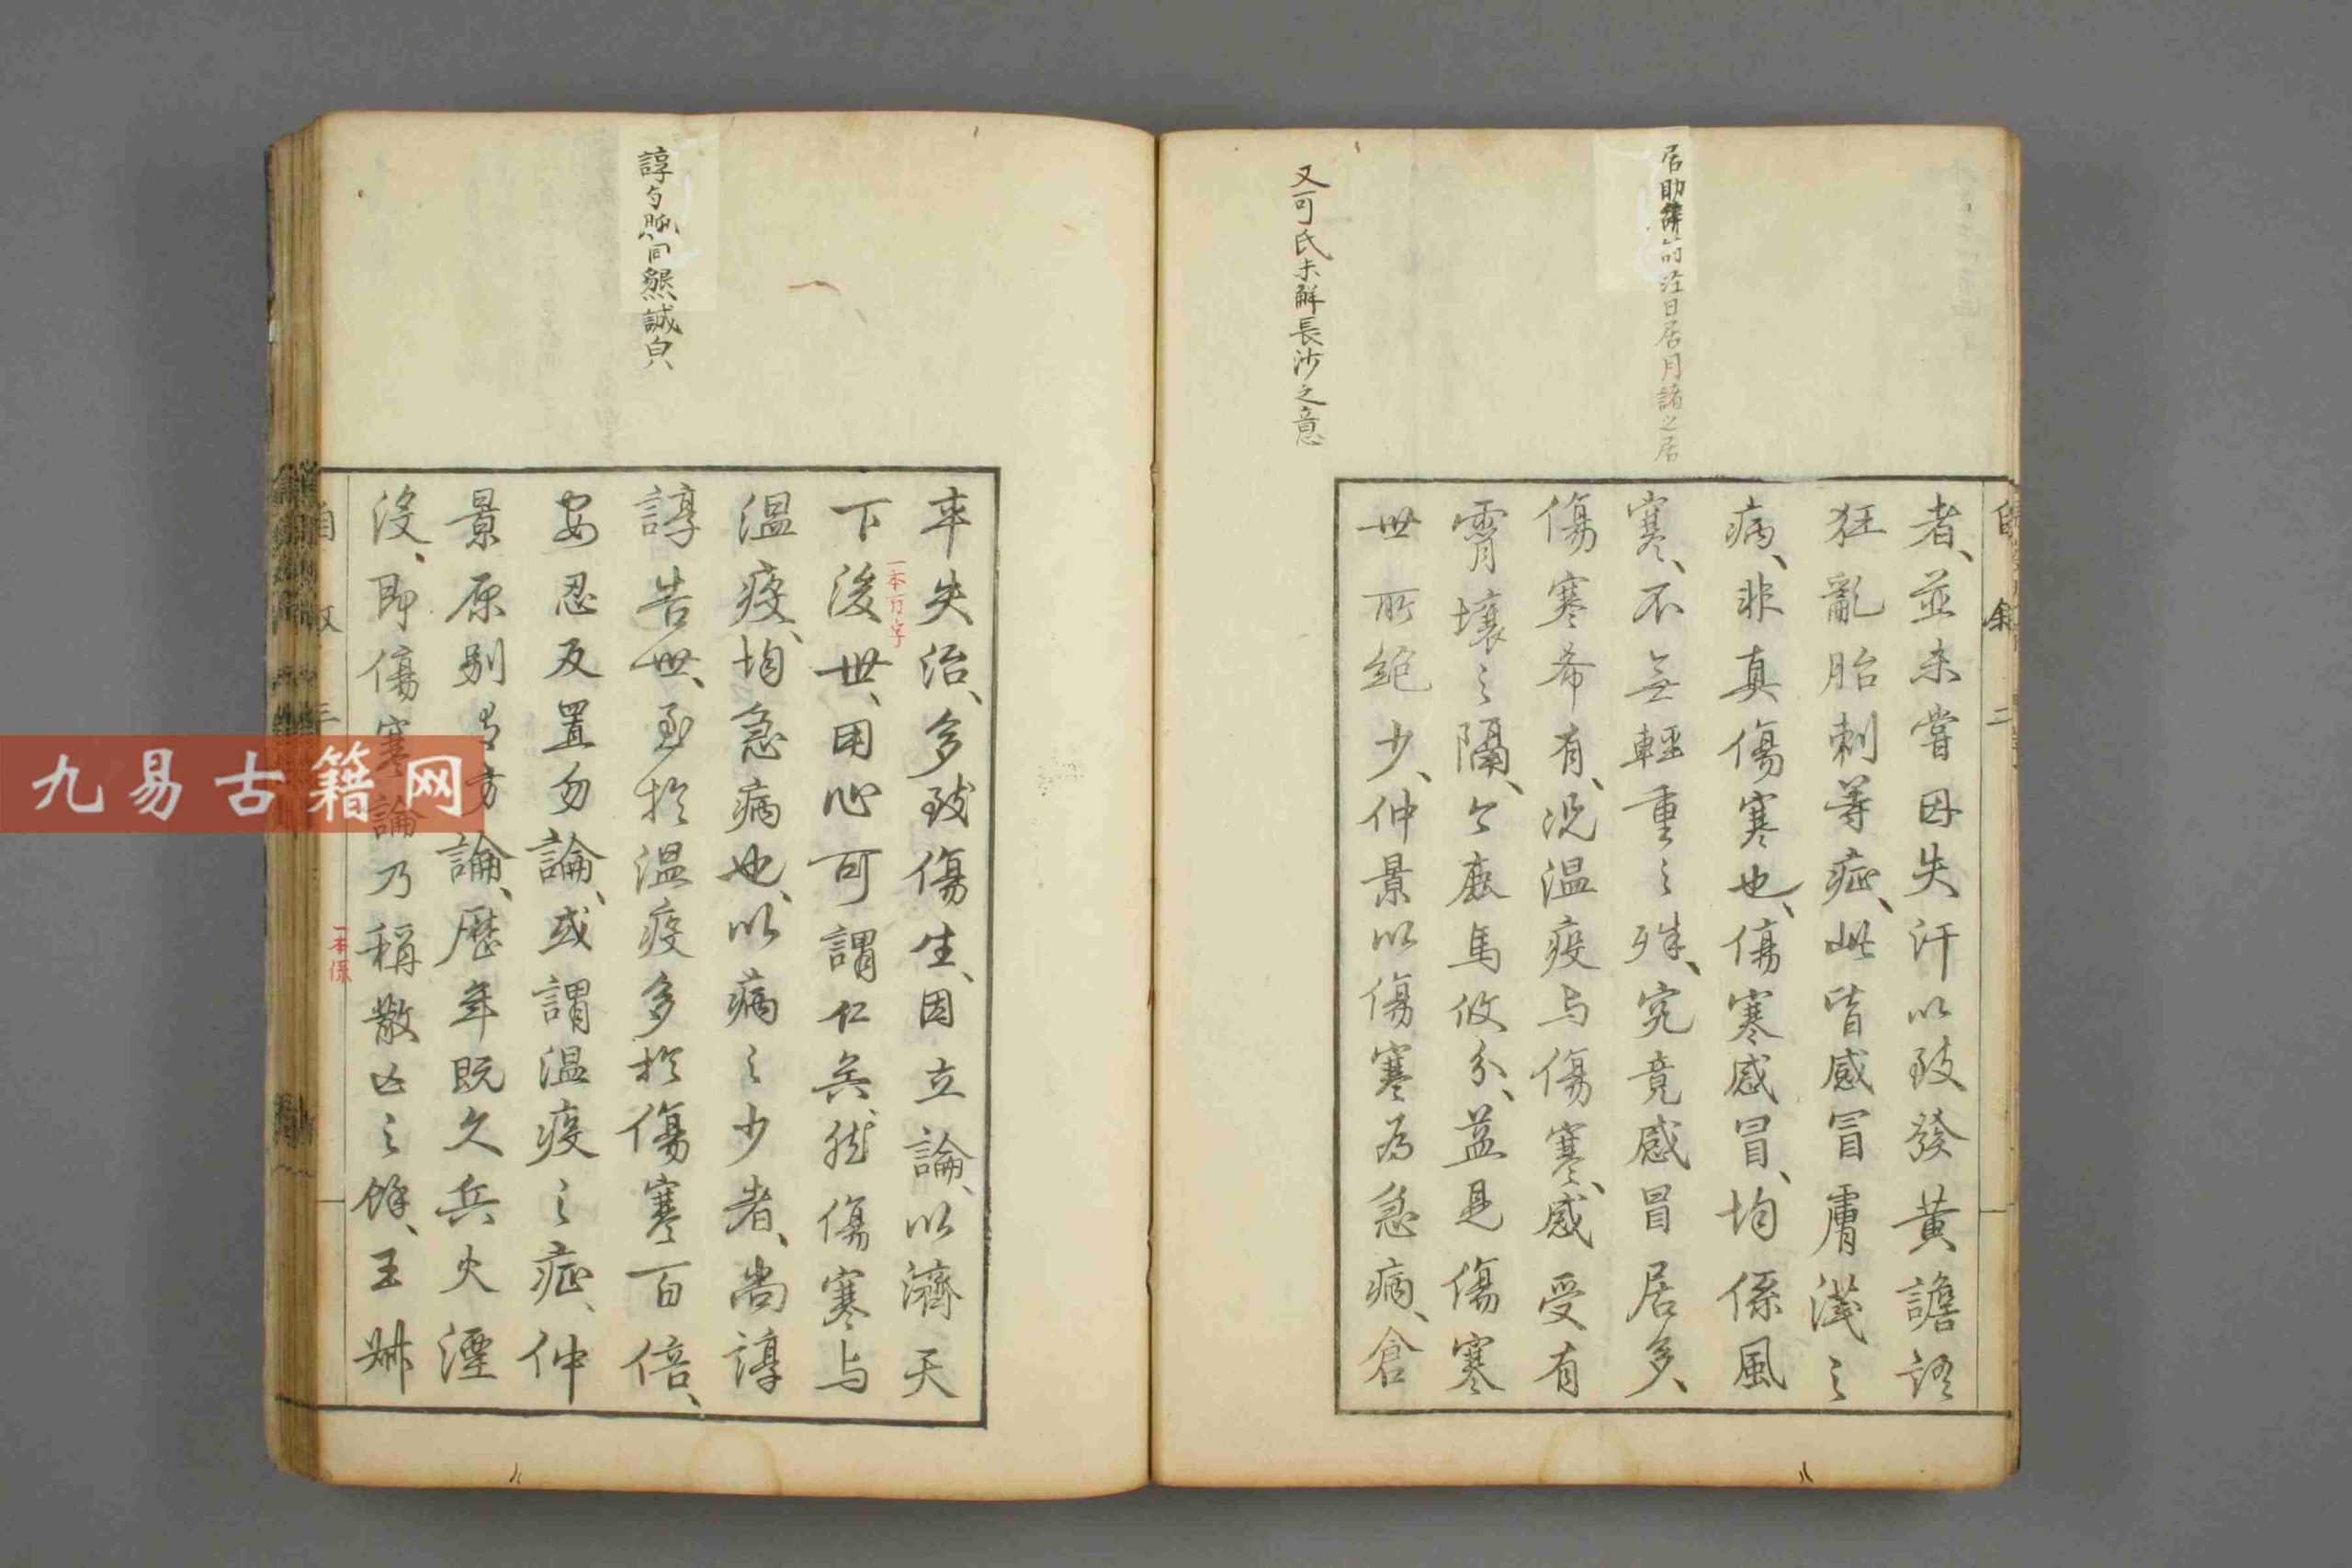 居助辭前注日居月諸之居
又可氏未解長沙之意
自叙 二
者、並未嘗因失汗以致發黃譫語
狂亂胎刺等症、此皆感冒膚淺之
病、非真傷寒也、傷寒感冒、均係風
寒、不無輕重之殊、究竟感冒居多、
傷寒希有、况温疫与傷寒、感受有
霄壤之隔、今鹿馬攸分、益見傷寒
世所絶少、仲景以傷寒為急病、倉
諄与
同懇誠皃
卒失治、多致傷生、因立論、以濟天
下後世、用心可謂仁矣、然傷寒与
一本万字
温疫、均急病也、以病之少者、尚諄
諄告世、至於温疫多於傷寒百倍、
安忍反置勿論、或謂温疫之症、仲
景原別有方論、歷年既久兵火湮
没、即傷寒論乃稱散亡之餘、王叔
一本係
自叙 三
九易古籍网